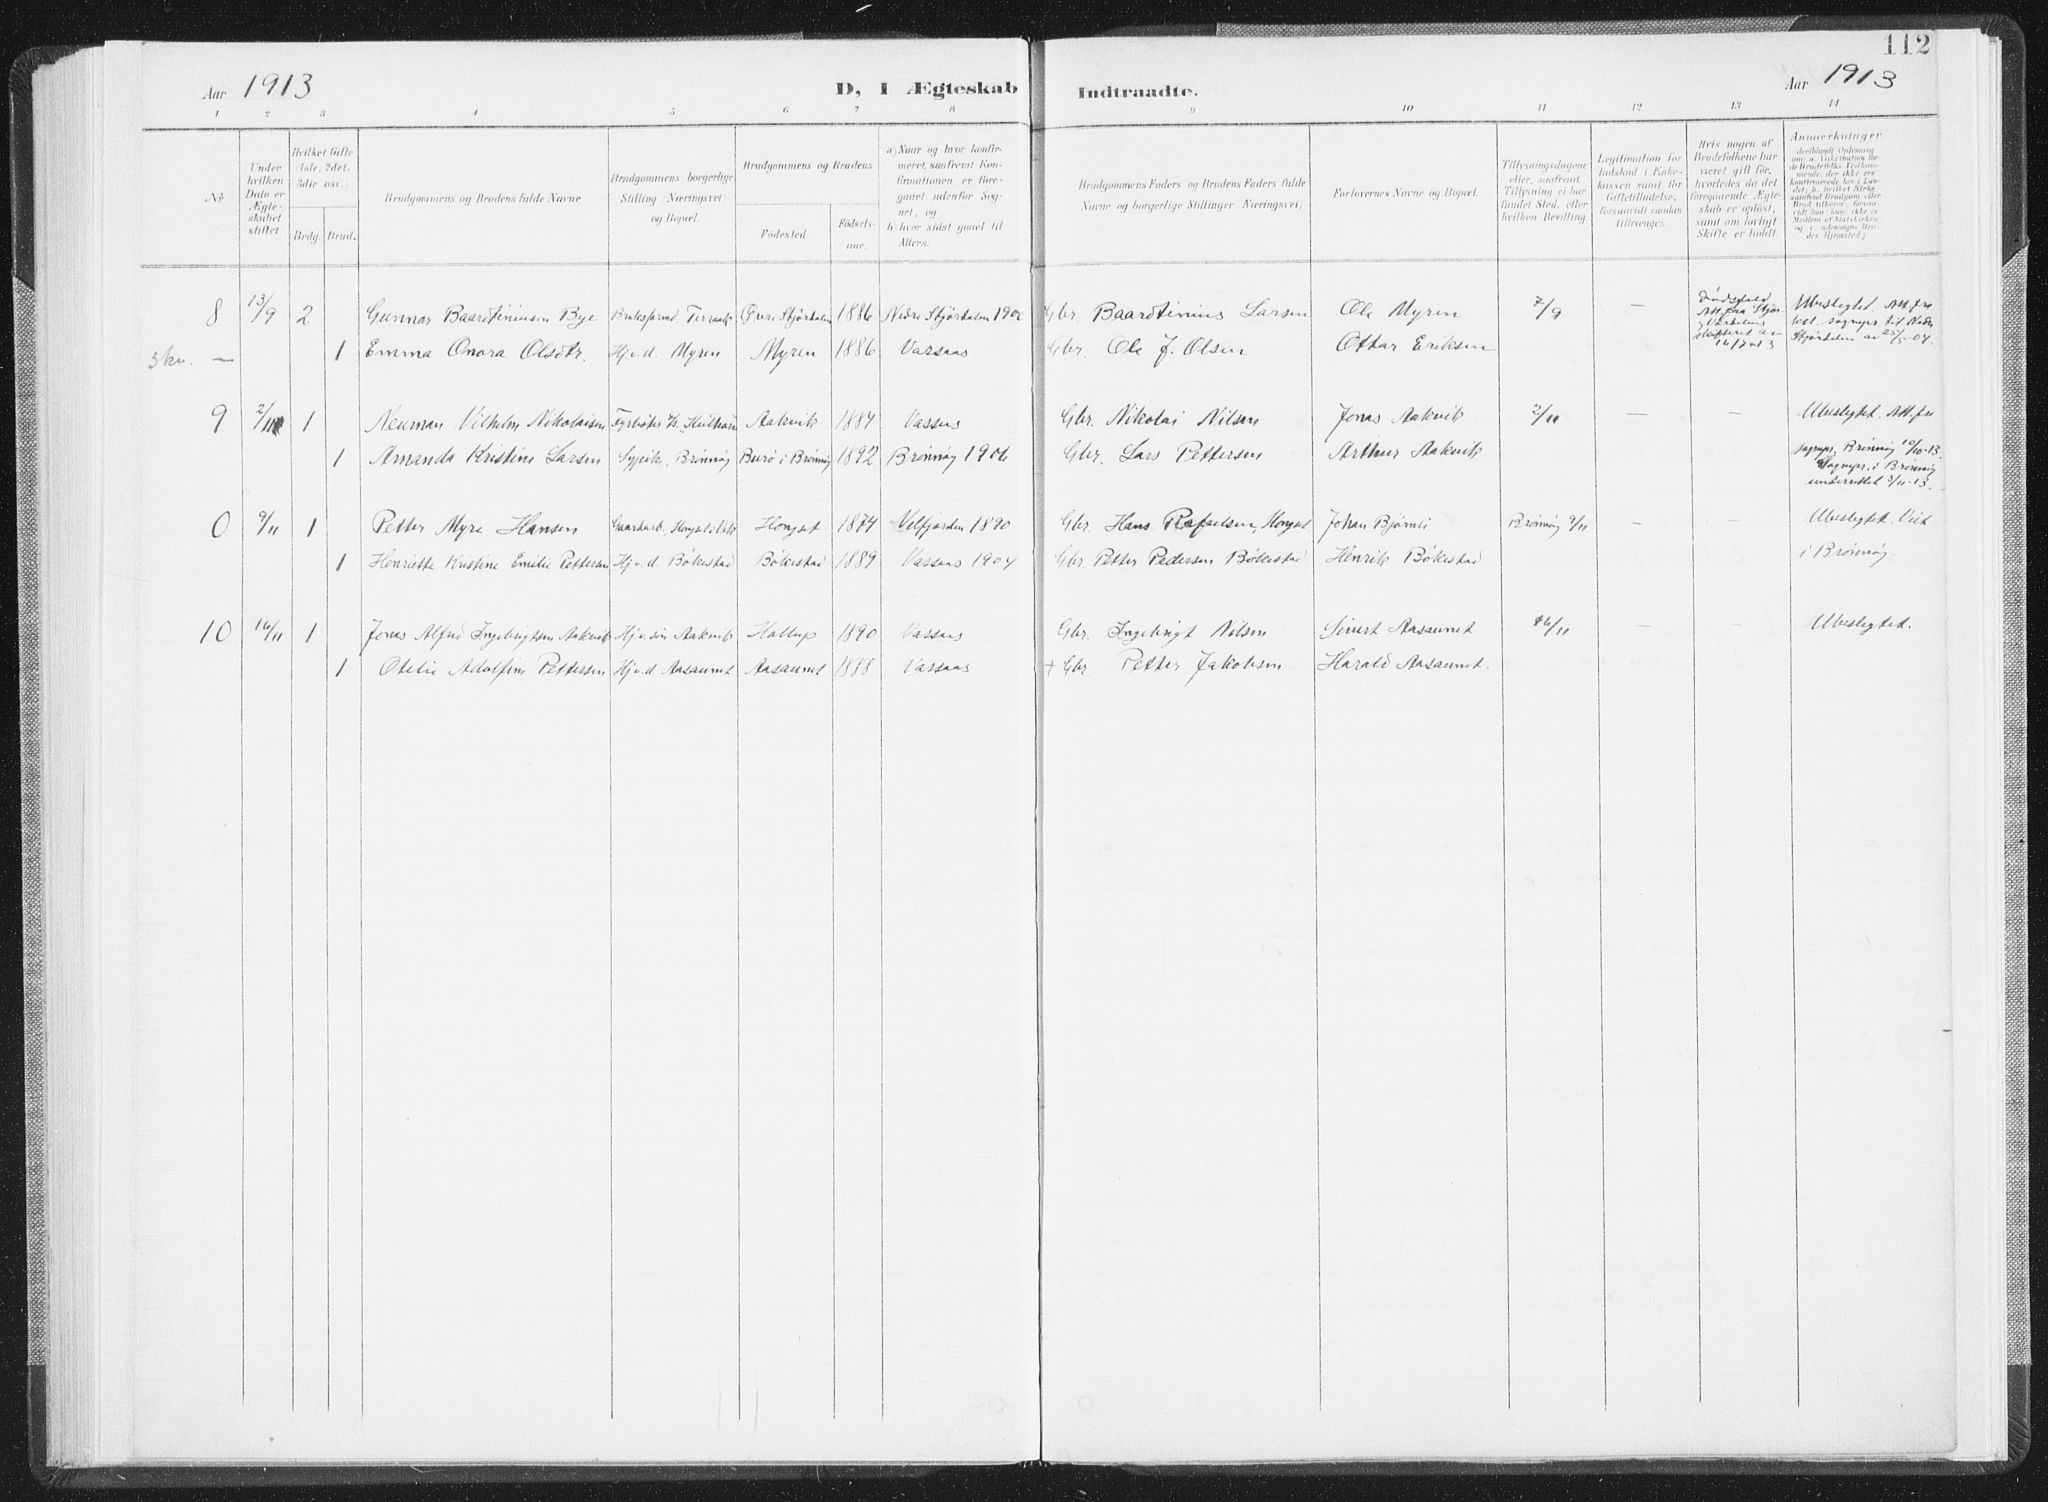 112
Aar 1913
D, I Ægteskab Indtraadte.
Aar 1913
1 2 3 4 5 6 7 8 9 10 11 12 13 14
No.
Under hvilken Dato er Ægteskabet stiftet.
Hvilket Gifte (1ste, 2det, 3die osv.)
Brdg. Brud.
Brudgommens og Brudens fulde Navne
Brudgommens borgerlige Stilling (Næringsvei) og Bopæl.
Brudgommens og Brudens
Födested.
Födselsaar.
a) Naar og hvor konfirmeret, saafremt Konfirmationen er foregaaet udenfor Sognet, og
b) hvor sidst gaaet til Alters.
Brudgommens Faders og Brudens Faders fulde Navne og borgerlige Stillinger (Næringsvei)
Forlovernes Navne og Bopæl.
Tillysningsdagene eller, saafremt Tillysning ei har fundet Sted, efter hvilken Bevilling.
Legitimation for Indskud i Enkekassen samt for Giftetilladelse, forsaavidt saadan tiltrænges.
Hvis nogen af Brudefolkene har været gift før, hvorledes da det foregaaende Ægteskab er opløst, samt om lovligt Skifte er holdt.
Anmærkninger,
8 13/9 2 Gunnar Baardtiniusen Bye Øvre Stjørdalen 1886 Nedre Stjørdalen Gbr. Baardtinius Larsen Ole Myren 7/9 — Dødsfald Ubeslegtet. Att. fra
3 kv. — 1 Emma Onora Olsdtr. Hj.v.d. Myren Myren 1886 Vassaas Gbr. Ole J. Olsen Ottar Eriksen
9 2/11 1 Neuman Vilhelm Nikolaisen Aakvik 1884 Vassaas Gbr. Nikolai Nilsen Jonas Aakvik 2/11 — — Ubeslegtet. Att. fra
1 Amanda Kristine Larsen Sypike, Brønnøy Burø i Brønnøy 1892 Brønnøy 1906 Gbr. Lars Pettersen Arthur Aakvik sognepr. Brønnøy 10/10-13.
Sognepr. i Brønnøy
underrettet 3/11-13.
0 9/11 1 Petter Myre Hansen Hongset 1874 Velfjorden 1890 Gbr. Hans Rafaelsen, Hongset Johan Bjørnli Brønnøy 9/11 — — Ubeslegtet. Viet
1 Henriette Kristine Emilie Pettersen Hj.v.d. Bøkestad Bøkestad 1889 Vassaas 1904 Gbr. Petter Pedersen Bøkestad Henrik Bøkestad i Brønnøy.
10 16/11 1 Jonas Alfred Ingebrigtsen Aakvik Hj.v. søn Aakvik 1890 Vassaas Gbr. Ingebrigt Nilsen Sivert Aasaunet 16/11 — — Ubeslegtet.
1 Otelie Adolfine Pettersen Hj.v.d Aasaunet Aasaunet 1888 Vassaas + Gbr. Petter Jakobsen Harald Aasaunet.